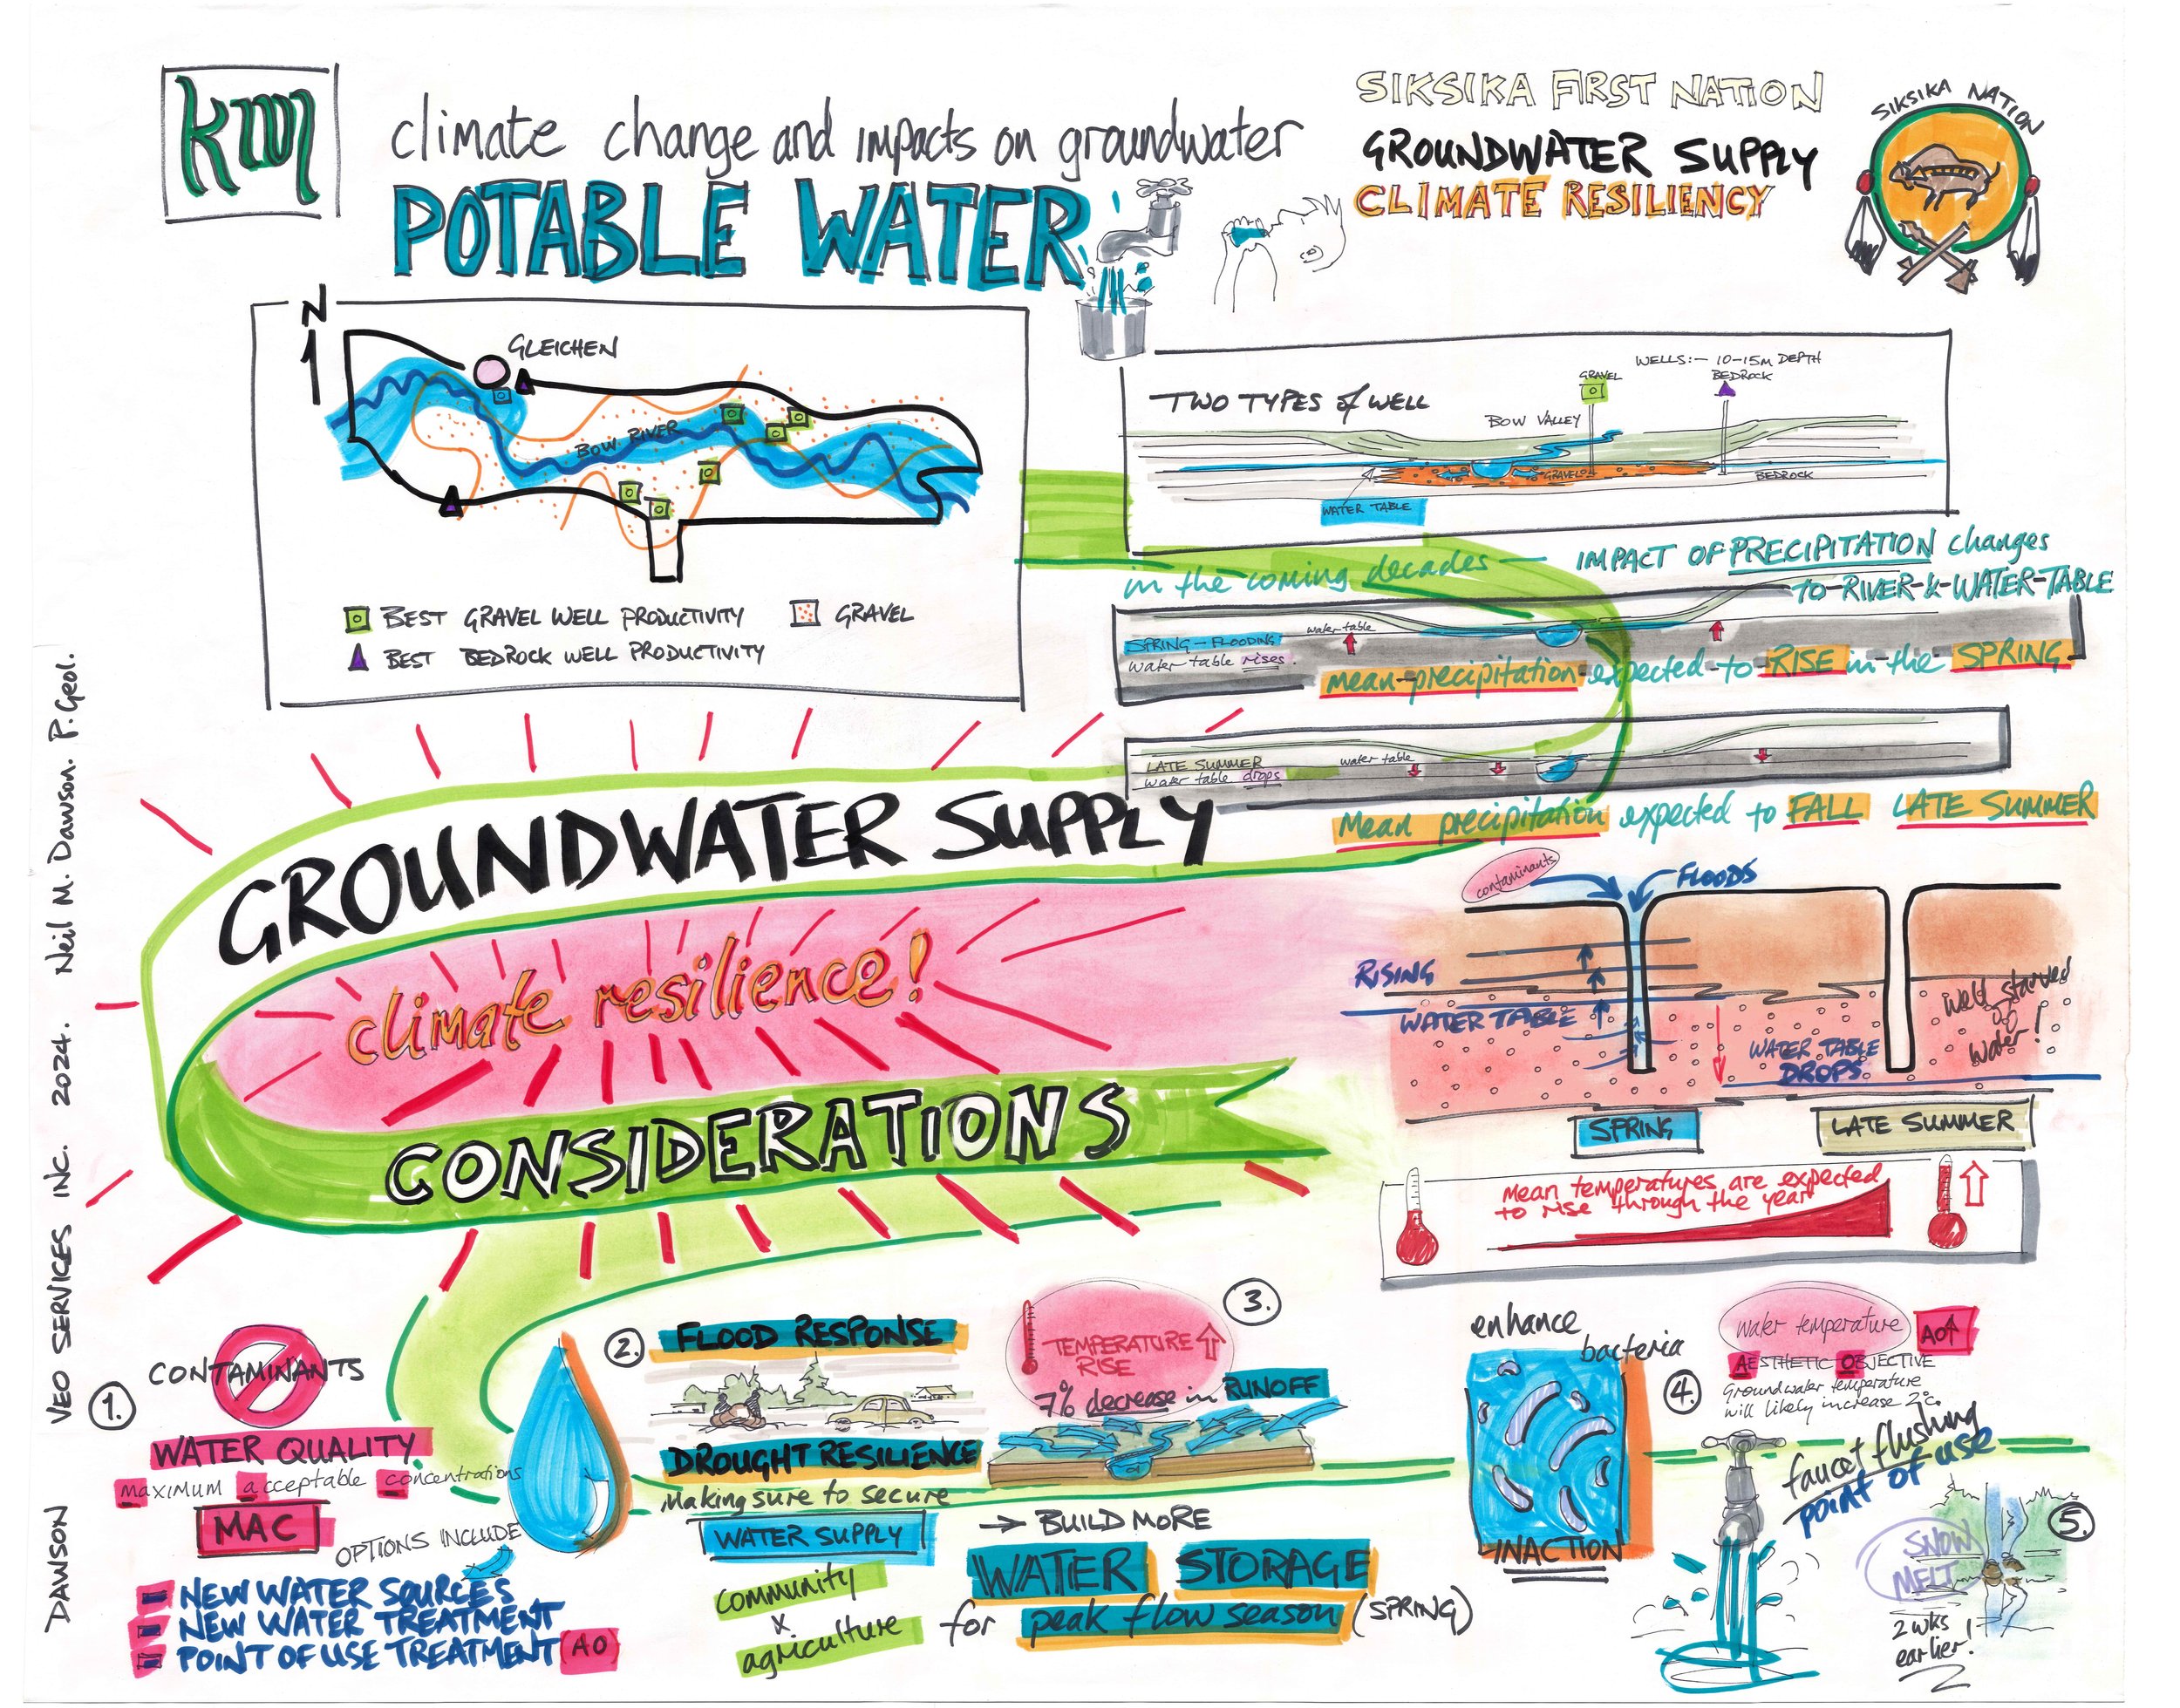 km
climate change and impacts on groundwater
POTABLE WATER
SIKSIKA FIRST NATION
GROUNDWATER SUPPLY
CLIMATE RESILIENCY
SIKSIKA NATION
N
GLEICHEN
BOW RIVER
BEST GRAVEL WELL PRODUCTIVITY
GRAVEL
BEST BEDROCK WELL PRODUCTIVITY
TWO TYPES of WELL
WELLS:- 10-15M DEPTH
GRAVEL
BEDROCK
BOW VALLEY
GRAVEL
BEDROCK
WATER TABLE
in the coming decades — IMPACT OF PRECIPITATION changes
TO-RIVER-&-WATER-TABLE
SPRING - FLOODING
water table rises.
water table
mean-precipitation-expected-to-RISE in the SPRING
LATE SUMMER
water table drops
water table
Mean precipitation expected to FALL LATE SUMMER
GROUNDWATER SUPPLY
climate resilience!
CONSIDERATIONS
contaminants
FLOODS
RISING
WATER TABLE
WATER TABLE
DROPS
well starved
of
water!
SPRING
LATE SUMMER
Mean temperatures are expected
to rise through the year
1.
CONTAMINANTS
WATER QUALITY
maximum acceptable concentrations
MAC
OPTIONS INCLUDE
NEW WATER SOURCES
NEW WATER TREATMENT
POINT OF USE TREATMENT AO
2.
FLOOD RESPONSE
DROUGHT RESILIENCE
Making sure to secure
WATER SUPPLY
community
x
agriculture
3.
TEMPERATURE
RISE
7% decrease in RUNOFF
→ BUILD MORE
WATER STORAGE
for peak flow season (SPRING)
enhance
bacteria
INACTION
4.
water temperature
AO↑
AESTHETIC OBJECTIVE
Groundwater temperature
will likely increase 2°c.
faucet flushing
point of use
5.
SNOW
MELT
2 wks
earlier!
DAWSON VEO SERVICES INC. 2024. Neil M. Dawson. P.Geol.